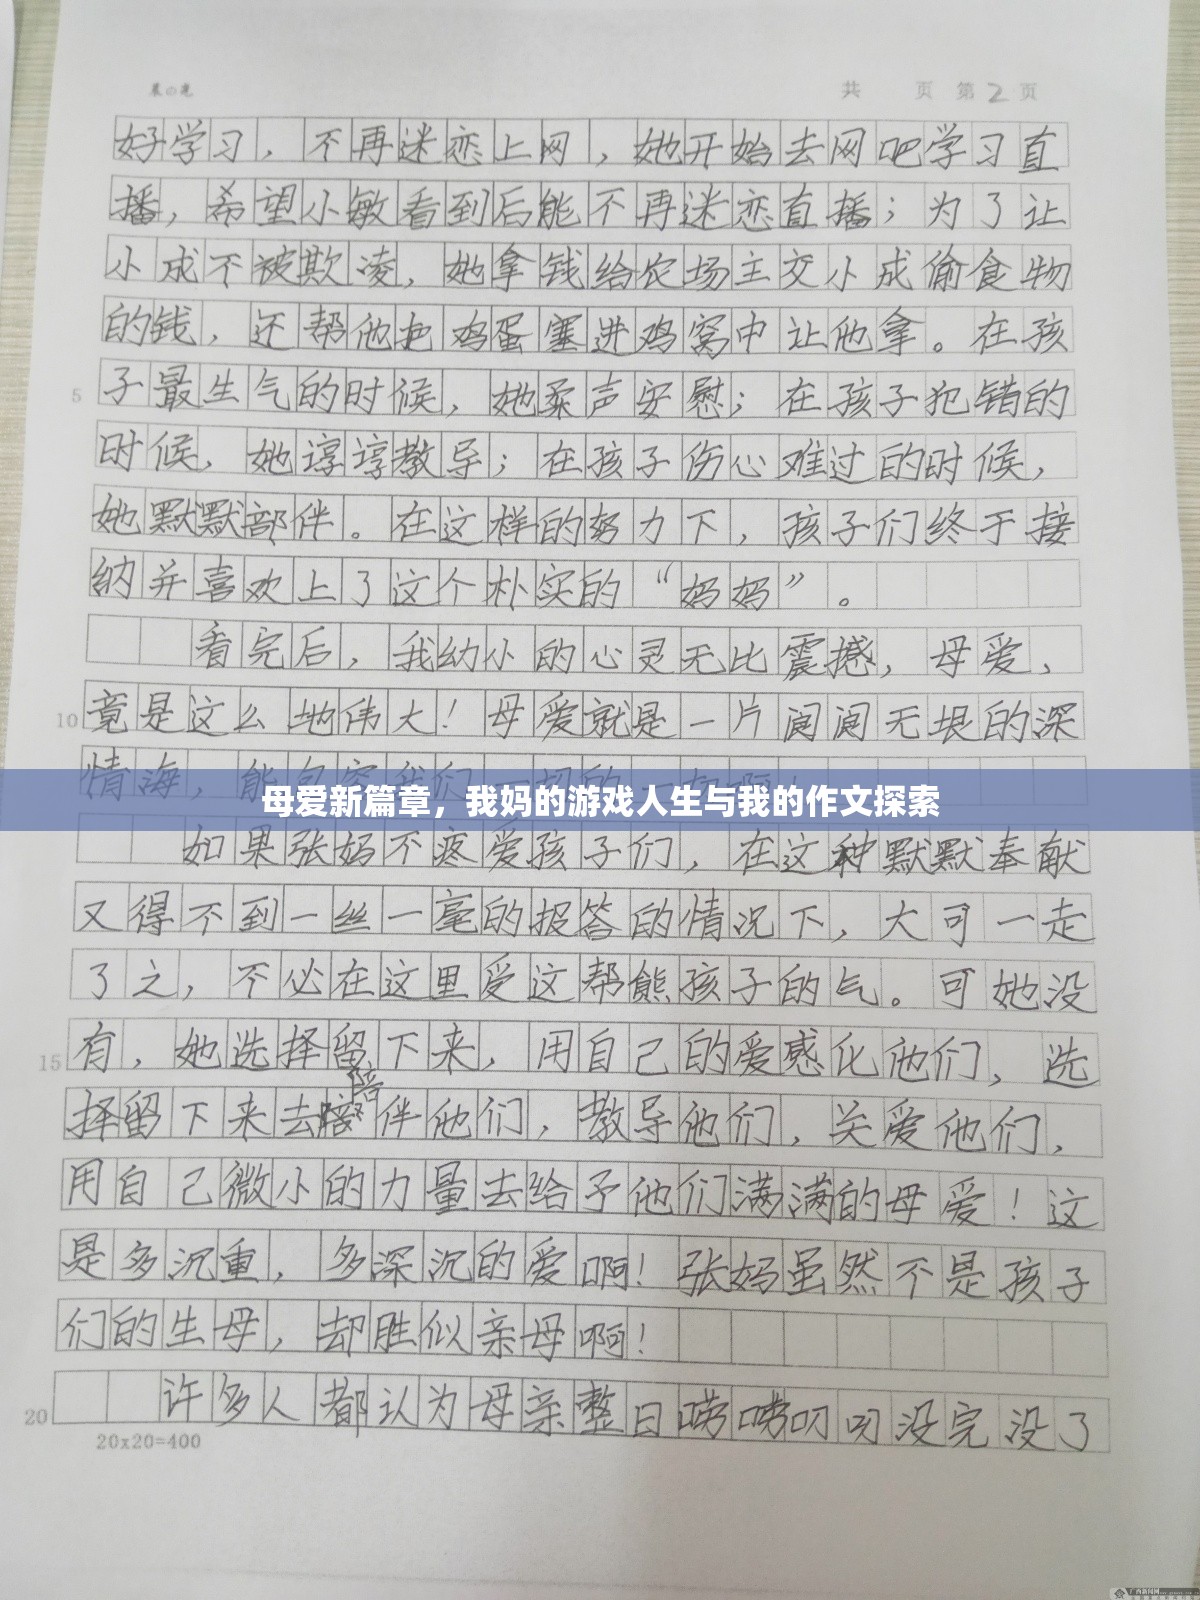 晨の光
共 页 第2页
好学习，不再迷恋上网，她开始去网吧学习直
播，希望小敏看到后能不再迷恋直播；为了让
小成不被欺凌，她拿钱给农场主交小成偷食物
的钱，还帮他把鸡蛋塞进鸡窝中让他拿。在孩
5 子最生气的时候，她柔声安慰；在孩子犯错的
时候，她谆谆教导；在孩子伤心难过的时候，
她默默部伴。在这样的努力下，孩子们终于接
纳并喜欢上了这个朴实的“妈妈”。
看完后，我幼小的心灵无比震撼，母爱、
10 竟是这么地伟大！母爱就是一片阔阔无垠的深
情海，能包容我们
母爱新篇章，我妈的游戏人生与我的作文探索
如果张妈不疼爱孩子们，在这种默默奉献
又得不到一丝一毫的报答的情况下，大可一走
了之，不必在这里受这帮熊孩子的气。可她没
15 有，她选择留下来，用自己的爱感化他们，选
择留下来去陪伴他们，教导他们，关爱他们，
用自己微小的力量去给予他们满满的母爱！这
是多沉重，多深沉的爱啊！张妈虽然不是孩子
们的生母，却胜似亲母啊！
20 许多人都认为母亲整日唠唠叨叨没完没了
20x20=400
广西新闻网